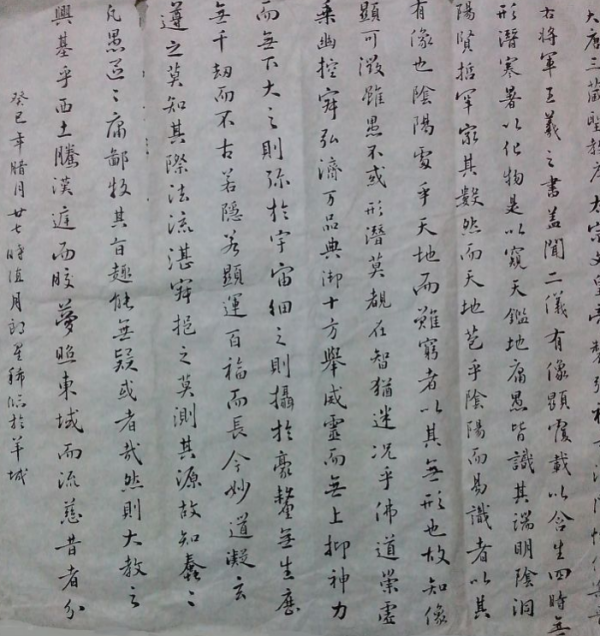 大唐三藏聖教序太宗文皇帝製弘福寺沙門懷仁集晉
右將軍王羲之書蓋聞二儀有像顯覆載以含生四時無
形潛寒暑以化物是以窺天鑑地庸愚皆識其端明陰洞
陽賢哲罕窮其數然而天地苞乎陰陽而易識者以其
有像也陰陽處乎天地而難窮者以其無形也故知像
顯可徵雖愚不或形潛莫覩在智猶迷況乎佛道崇虛
乘幽控寂弘濟万品典御十方舉威靈而無上抑神力
而無下大之則弥於宇宙細之則攝於豪釐無生歷
無千劫而不古若隱若顯運百福而長今妙道凝玄
遵之莫知其際法流湛寂挹之莫測其源故知蠢々
凡愚區々庸鄙投其旨趣能無疑或者哉然則大教之
興基乎西土騰漢庭而皎夢照東域而流慈昔者分
癸巳年腊月廿七時值月朗星稀臨於羊城